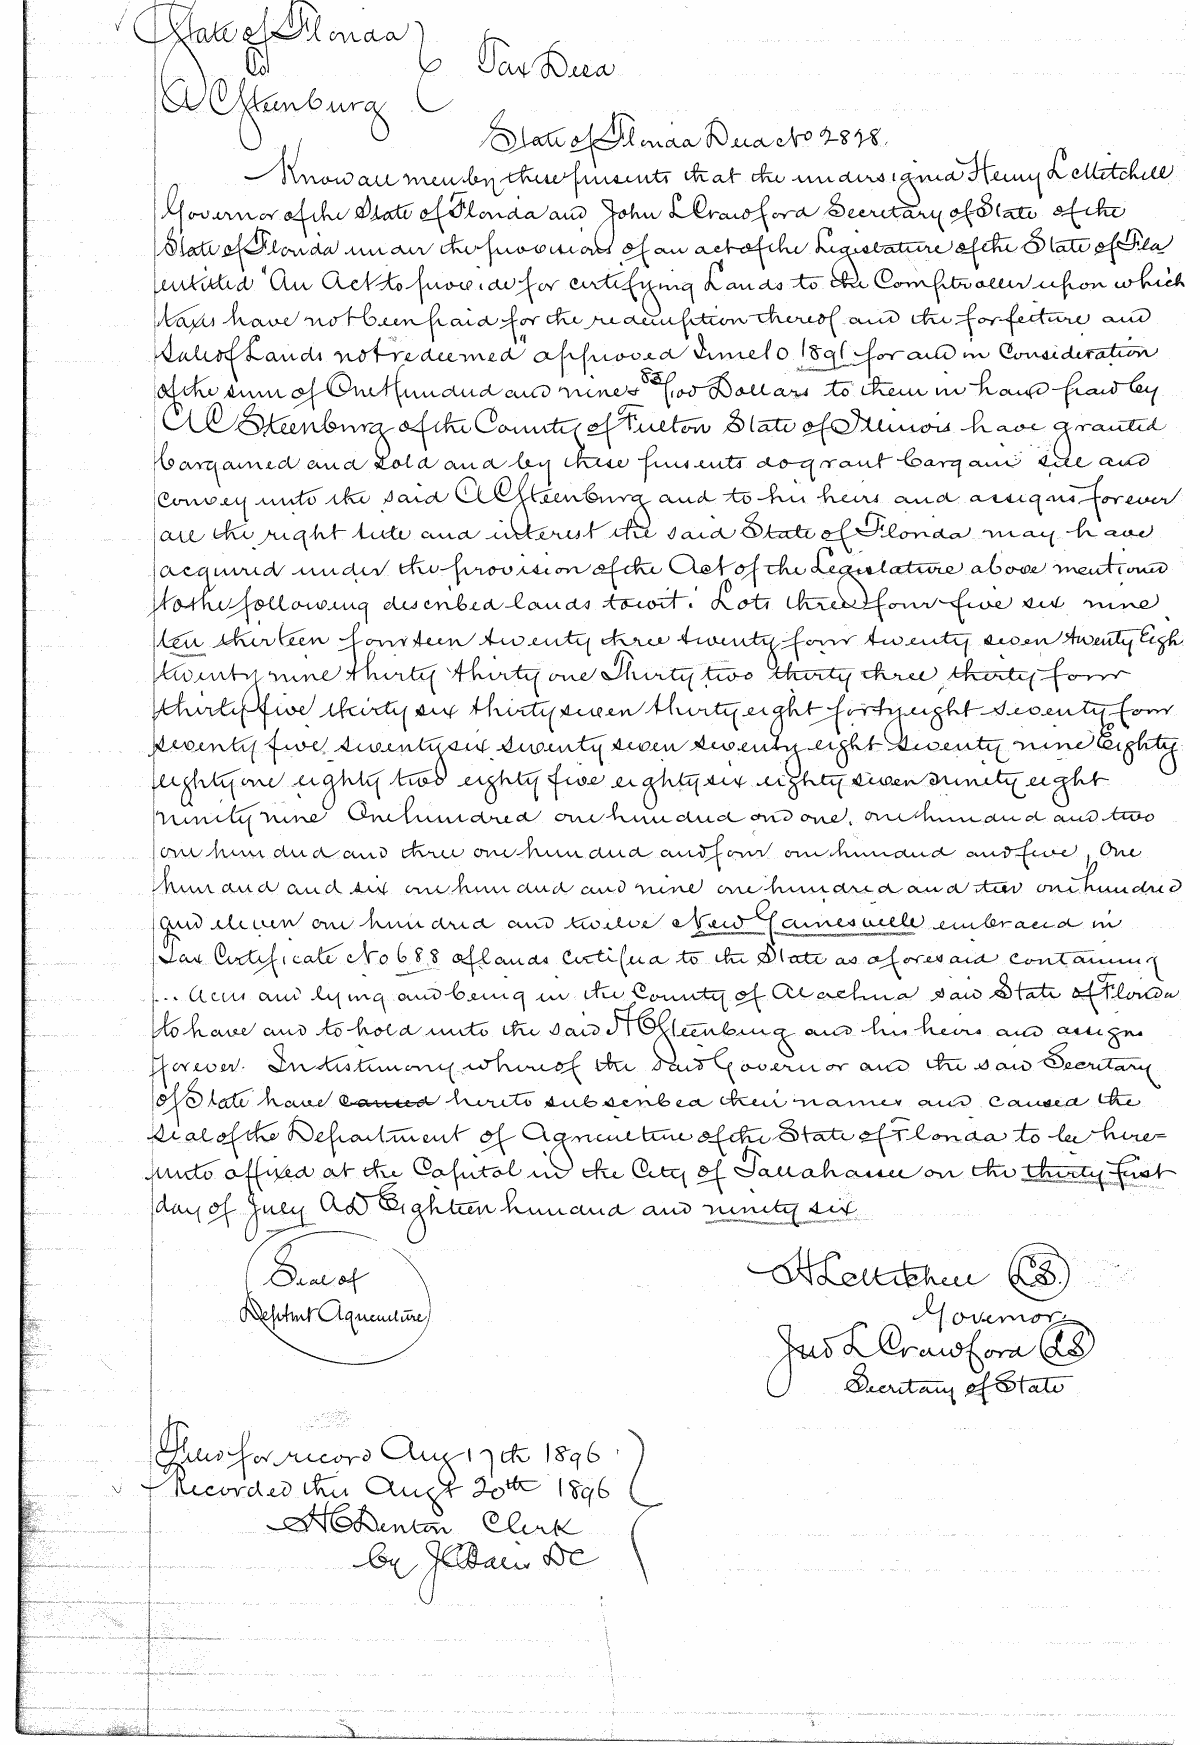 State of Florida
To Tax Deed
A C Steenburg
State of Florida Deed No 2828.
Know all men by these presents that the undersigned Henry L Mitchell
Governor of the State of Florida and John L Crawford Secretary of State of the
State of Florida under the provisions of an act of the Legislature of the State of Fla
entitled "An Act to provide for certifying Lands to the Comptroller upon which
taxes have not been paid for the redemption thereof and the forfeiture and
Sale of Lands not redeemed" approved June 10 1891 for and in Consideration
of the sum of One Hundred and nine & /100 Dollars to them in hand paid by
A C Steenburg of the County of Fulton State of Illinois have granted
bargained and sold and by these presents do grant bargain sell and
convey unto the said A C Steenburg and to his heirs and assigns forever
all the right title and interest the said State of Florida may have
acquired under the provision of the Act of the Legislature above mentioned
to the following described lands towit: Lots three four five six nine
ten thirteen fourteen twenty three twenty four twenty seven twenty Eigh
twenty nine thirty thirty one Thirty two thirty three thirty four
thirty five thirty six thirty seven thirty eight forty eight Seventy four
seventy five seventy six seventy seven seventy eight Seventy nine Eighty
eighty one eighty two eighty five eighty six eighty seven ninity eight
ninity nine One hundred one hundred and one, one hundred and two
one hundred and three one hundred and four one hundred and five, One
hundred and six one hundred and nine one hundred and ten one hundred
and eleven one hundred and twelve New Gainesville embraced in
Tax Certificate No 688 of lands Certified to the State as aforesaid containing
... Acres and lying and being in the County of Alachua said State of Florida
to have and to hold unto the said A C Steenburg and his heirs and assigns
forever. In testimony whereof the said Governor and the said Secretary
of State have caused hereto subscribed their names and caused the
seal of the Department of Agriculture of the State of Florida to be here=
unto affixed at the Capitol in the City of Tallahassee on the thirty first
day of July AD Eighteen hundred and ninity six
Seal of
Deptmt Agriculture
H L Mitchell LS.
Governor
Jno L Crawford LS
Secretary of State
Filed for record Aug 17th 1896
Recorded this Augt 20th 1896
H C Denton Clerk
by DC